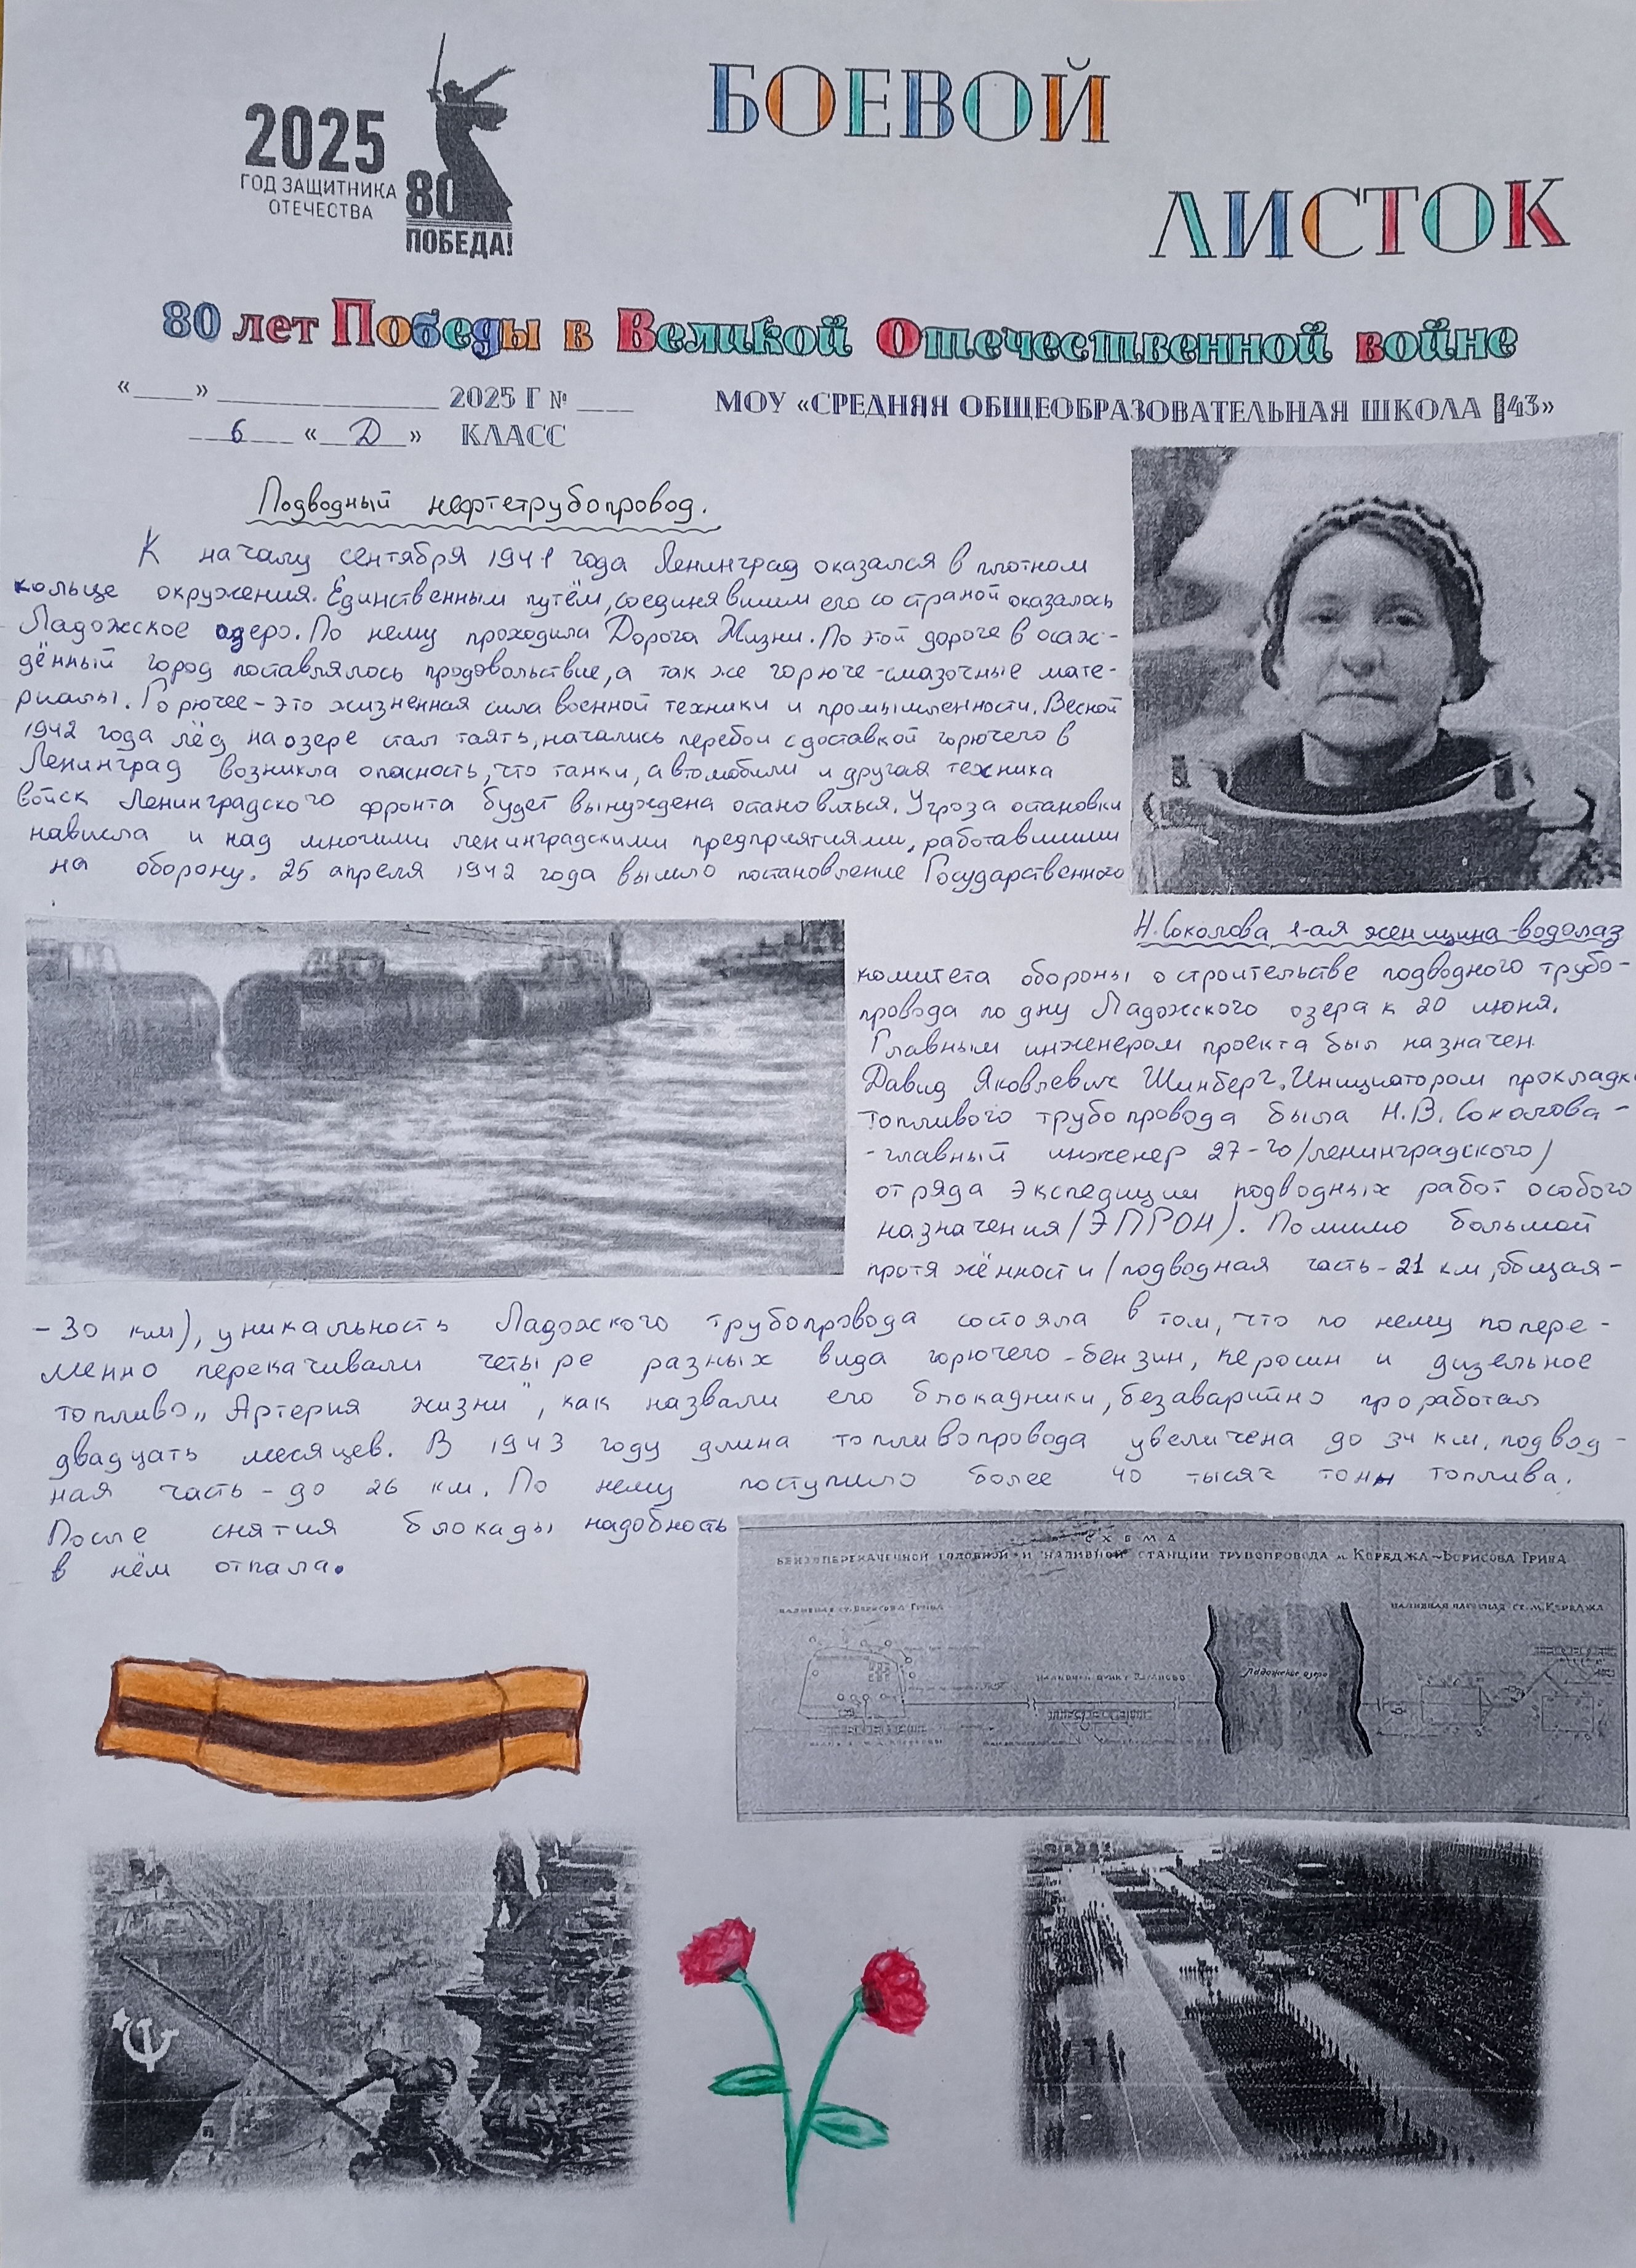 2025
ГОД ЗАЩИТНИКА
ОТЕЧЕСТВА
80
ПОБЕДА!
БОЕВОЙ
ЛИСТОК
80 лет Победы в Великой Отечественной войне
«____» ______________ 2025 Г № ____
МОУ «СРЕДНЯЯ ОБЩЕОБРАЗОВАТЕЛЬНАЯ ШКОЛА 43»
6 «Д» КЛАСС
Подводный нефтетрубопровод.
К началу сентября 1941 года Ленинград оказался в плотном
кольце окружения. Единственным путём, соединявшим его со страной оказалось
Ладожское озеро. По нему проходила Дорога Жизни. По этой дороге в осаж-
дённый город поставлялось продовольствие, а так же горюче-смазочные мате-
риалы. Горючее - это жизненная сила военной техники и промышленности. Весной
1942 года лёд на озере стал таять, начались перебои с доставкой горючего в
Ленинград возникла опасность, что танки, автомобили и другая техника
войск Ленинградского фронта будет вынуждена остановиться. Угроза остановки
нависла и над многими ленинградскими предприятиями, работавшими
на оборону. 25 апреля 1942 года вышло постановление Государственного
Н. Соколова 1-ая женщина-водолаз
комитета обороны о строительстве подводного трубо-
провода по дну Ладожского озера к 20 июня.
Главным инженером проекта был назначен
Давид Яковлевич Шинберг. Инициатором прокладк
топливого трубопровода была Н.В. Соколова -
- главный инженер 27-го /ленинградского/
отряда экспедиции подводных работ особого
назначения /ЭПРОН). Помимо большой
протяжённости /подводная часть - 21 км, общая -
- 30 км), уникальность Ладожского трубопровода состояла в том, что по нему попере-
менно перекачивали четыре разных вида горючего - бензин, керосин и дизельное
топливо. „Артерия жизни", как назвали его блокадники, безаварийно проработал
двадцать месяцев. В 1943 году длина топливопровода увеличена до 34 км, подвод-
ная часть - до 26 км. По нему поступило более 40 тысяч тонн топлива.
После снятия блокады надобность
в нём отпала.
СХЕМА
БЕНЗОПЕРЕКАЧЕЧНОЙ ГОЛОВНОЙ И НАЛИВНОЙ СТАНЦИИ ТРУБОПРОВОДА М. КОРЕДЖА-БОРИСОВА ГРИВА
НАЛИВНАЯ СТ. БОРИСОВА ГРИВА
СТ. М. КОРЕДЖА
НАЛИВНОЙ ПУНКТ
Ладожское озеро